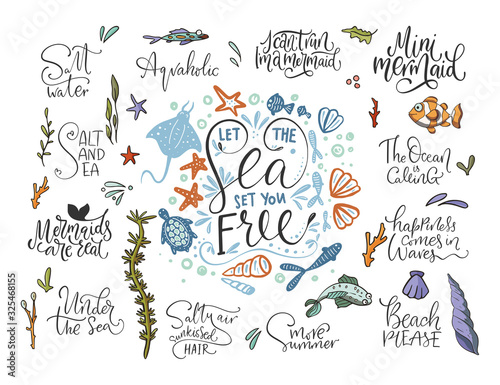 Salt
water
Aquaholic
I can't run
i'm a mermaid
Mini
mermaid
SALT
AND
SEA
LET THE
Sea
SET YOU
FREE
The Ocean
is
CALLING
Mermaids
are real
happiness
comes in
Waves
Under
the Sea
Salty air
sunkissed
HAIR
more
Summer
Beach
PLEASE
Adobe Stock | #325468155